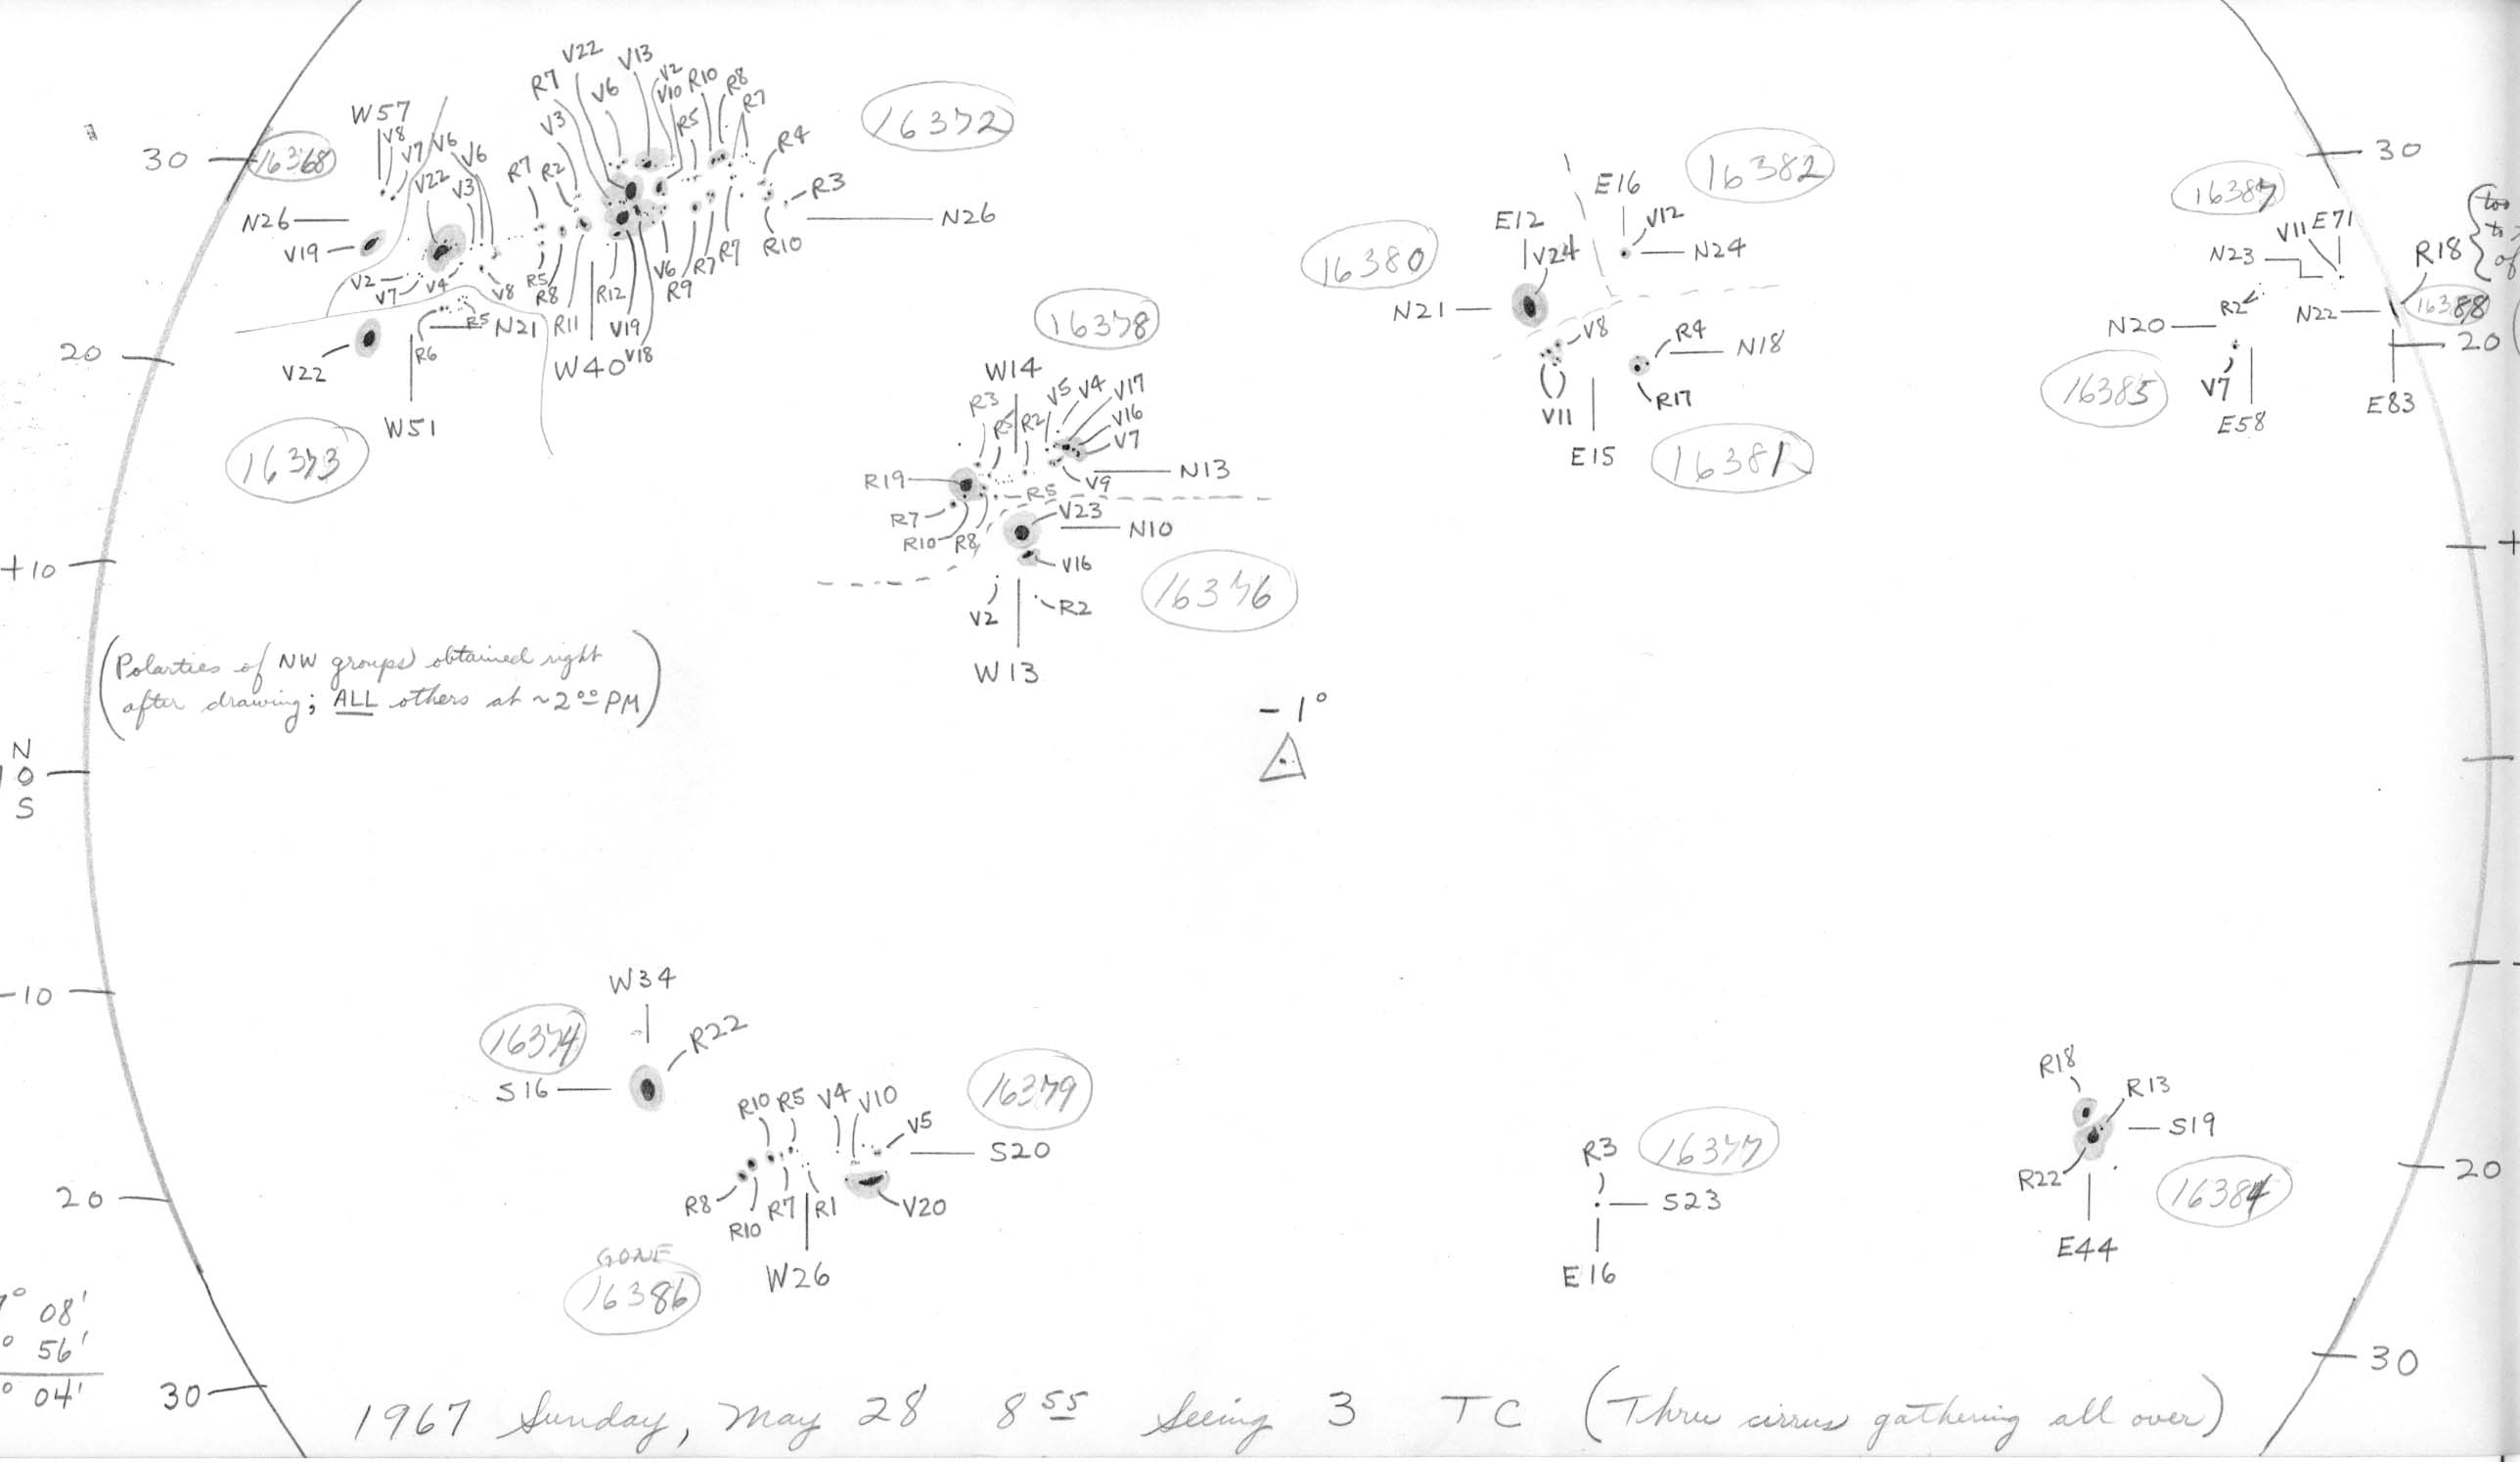 W57
V8
V7
V6
V6
V22
V3
30
16368
N26
V19
V2
V7
V4
V8
R5
N21
R6
20
V22
W51
16373
R7
V22
V6
V13
V2
V10
R10
R8
R7
R5
V3
R7
R2
R4
R3
N26
R10
R5
R8
R11
R12
V19
V18
V6
R9
R7
R7
W40
16372
16378
W14
R3
R5
R2
V5
V4
V17
V16
V7
R19
N13
V9
R5
R7
R10
R8
V23
N10
V16
V2
R2
W13
16376
16382
E16
V12
N24
16380
E12
V24
N21
V8
V11
E15
R4
N18
R17
16381
30
16387
V11
E71
N23
R18
too
of
R2
N22
16388
N20
20
V7
E58
16385
E83
+10
+
(Polarties of NW groups obtained right
after drawing; ALL others at ~2ºº PM)
-1°
N
0
S
-10
W34
16374
R22
S16
16379
R10
R5
V4
V10
V5
S20
R8
R10
R7
R1
V20
W26
GONE
16386
R3
16377
S23
E16
R18
R13
S19
R22
16384
E44
20
20
° 08'
° 56'
° 04'
30
30
1967 Sunday, May 28 8 55 Seeing 3 TC (Thru cirrus gathering all over)